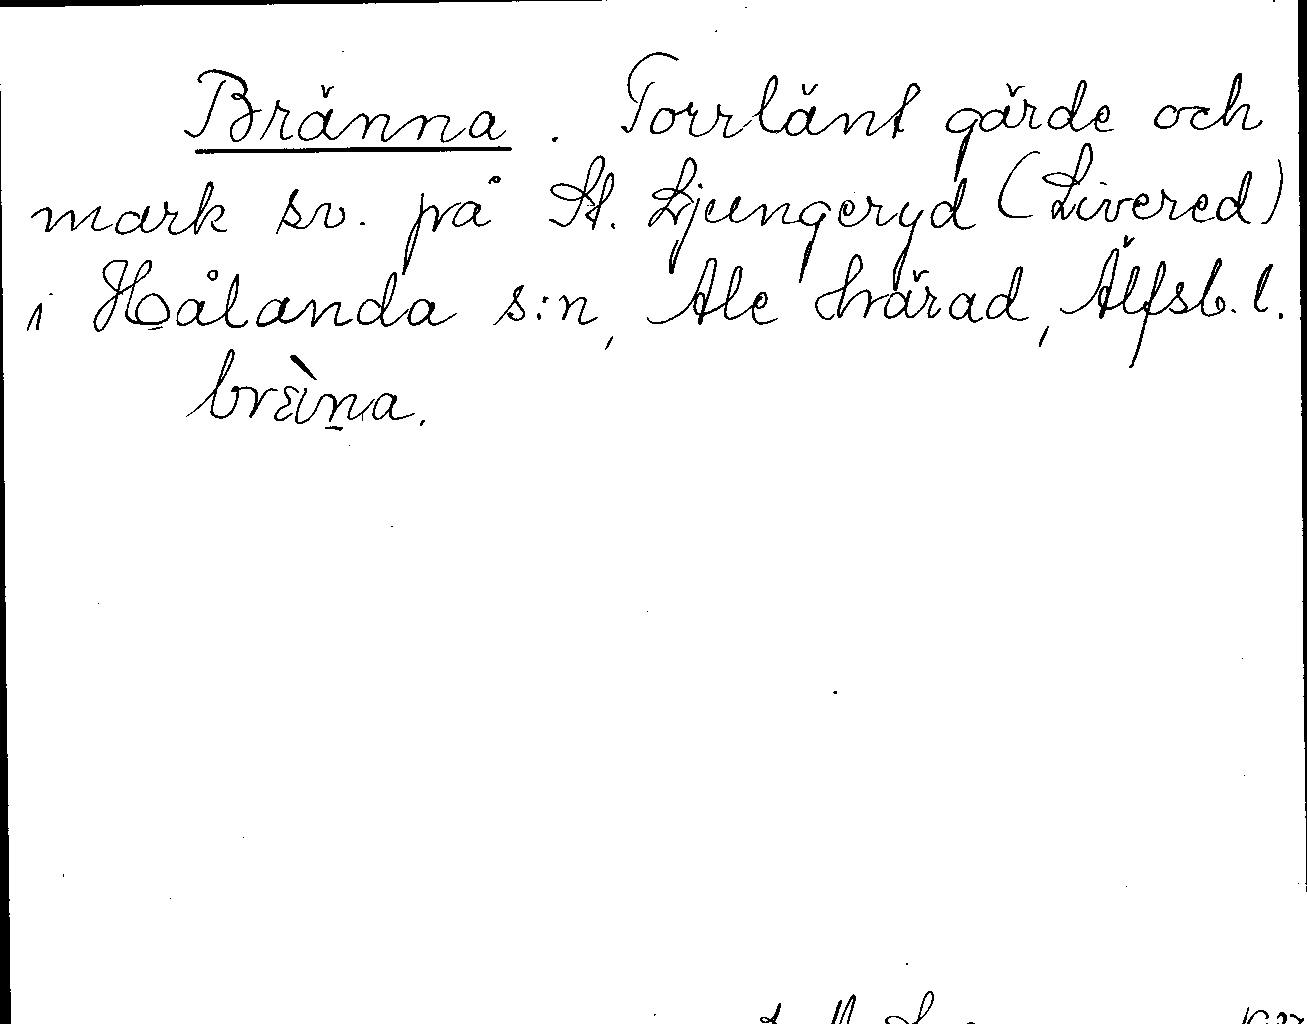 Bränna. Torrlänt gärde och
mark sv. på St. Ljungeryd (Livered)
i Hålanda s:n, Ale härad, Älfsb. l.
brɛ̀ṉa.